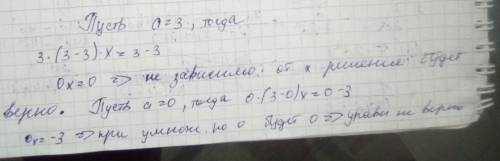 Пусть a=3, тогда
3·(3-3)·x=3-3
0x=0 => не зависимо от x решение будет
верно. Пусть a=0, тогда 0·(3-0)x=0-3
0x=-3 => при умнож. на 0 будет 0 => уравн не верно